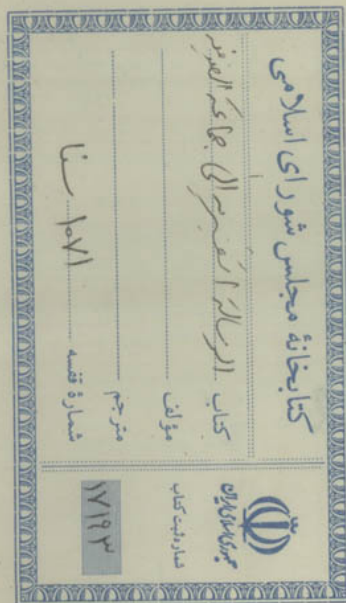 کتابخانهٔ مجلس شورای اسلامی
کتاب الرسالة القشیریه الی جماعة الصوفیه
مؤلف
مترجم
شماره قفسه ۱۰۷۱ سنا
جمهوری اسلامی ایران
شماره ثبت کتاب
۱۷۱۹۳